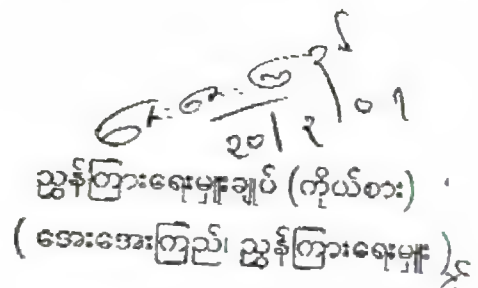 ၂၀၊၃၊၀၇
ညွှန်ကြားရေးမှူးချုပ် (ကိုယ်စား)
( အေးအေးကြည်၊ ညွှန်ကြားရေးမှူး )